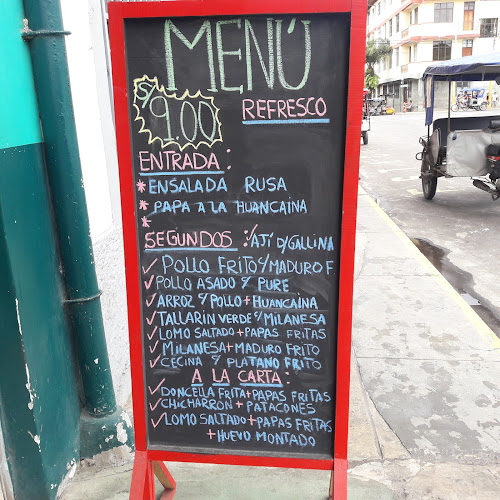 MENÚ
S/ 9.00
REFRESCO
ENTRADA :
* ENSALADA RUSA
* PAPA A LA HUANCAÍNA
*
SEGUNDOS : √AJÍ D/GALLINA
√ POLLO FRITO y/MADURO F
√ POLLO ASADO y/ PURE
√ ARROZ y/ POLLO + HUANCAÍNA
√ TALLARÍN VERDE y/ MILANESA
√ LOMO SALTADO + PAPAS FRITAS
√ MILANESA + MADURO FRITO
√ CECINA y/ PLATANO FRITO
A LA CARTA :
√ DONCELLA FRITA + PAPAS FRITAS
√ CHICHARRÓN + PATACONES
√ LOMO SALTADO + PAPAS FRITAS
+ HUEVO MONTADO